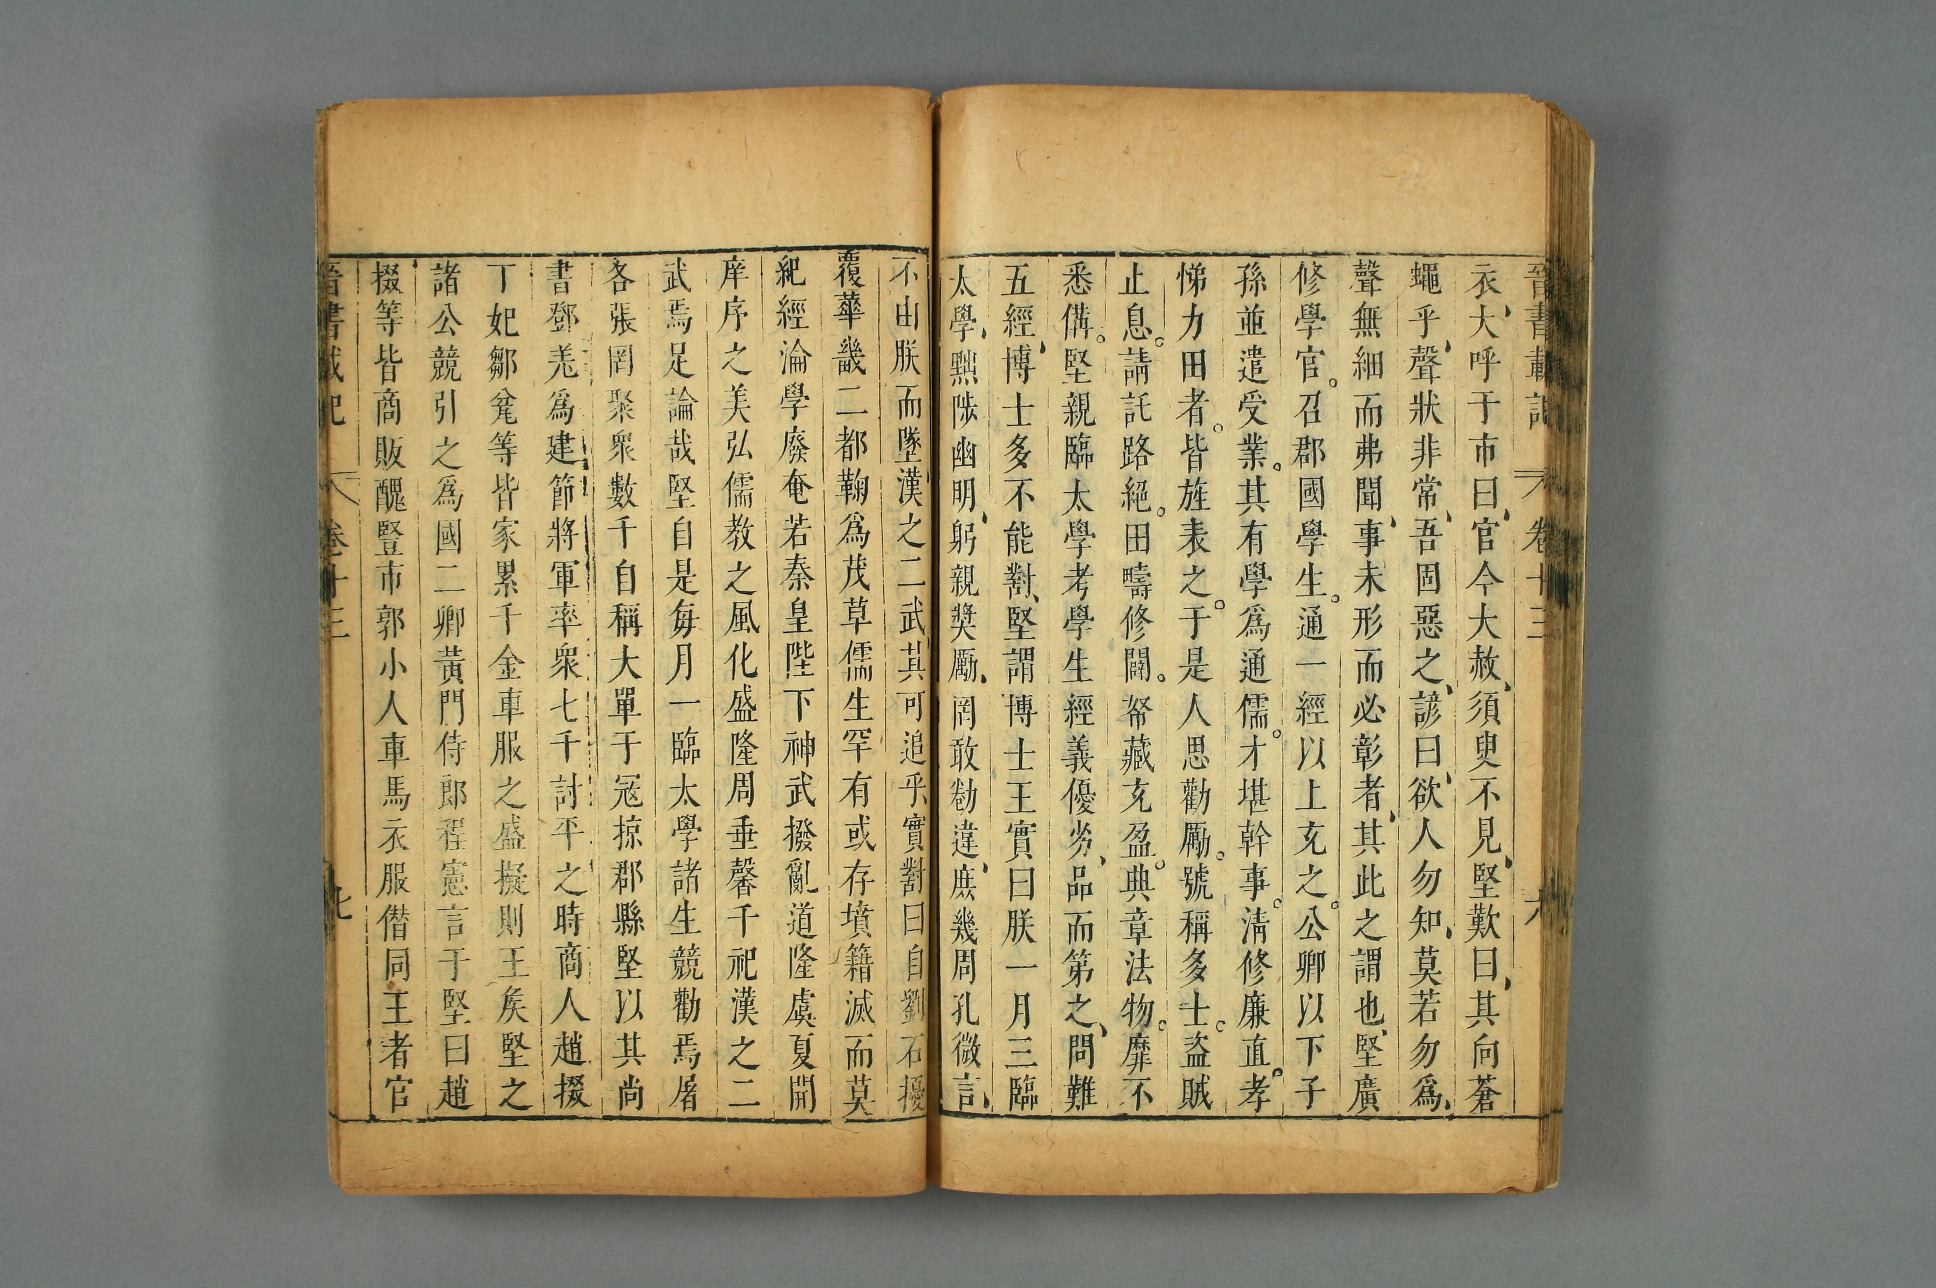 晉書載記 卷十三 六
衣、大呼于市曰、官今大赦、須臾不見、堅歎曰、其向蒼
蠅乎、聲狀非常、吾固惡之、諺曰、欲人勿知、莫若勿爲、
聲無細而弗聞、事未形而必彰者、其此之謂也、堅廣
修學官。召郡國學生。通一經以上充之。公卿以下子
孫並遣受業。其有學爲通儒。才堪幹事。清修廉直。孝
悌力田者。皆旌表之。于是人思勸勵。號稱多士。盜賊
止息。請託路絕。田疇修闢。帑藏充盈。典章法物。靡不
悉備。堅親臨太學考學生經義優劣、品而第之、問難
五經、博士多不能對、堅謂博士王寔曰朕一月三臨
太學、黜陟幽明、躬親獎勵、罔敢勌違、庶幾周孔微言、
不由朕而墜、漢之二武、其可追乎、寔對曰自劉石擾
覆華畿二都鞠爲茂草儒生罕有或存墳籍滅而莫
紀經淪學廢奄若秦皇陛下神武撥亂道隆虞夏開
庠序之美弘儒教之風化盛隆周垂馨千祀漢之二
武焉足論哉堅自是每月一臨太學諸生競勸焉屠
各張罔聚衆數千自稱大單于冦掠郡縣堅以其尚
書鄧羌爲建節將軍率衆七千討平之時商人趙掇
丁妃鄒瓮等皆家累千金車服之盛擬則王矦堅之
諸公競引之爲國二卿黃門侍郎程憲言于堅曰趙
掇等皆商販醜豎市郭小人車馬衣服僭同王者官
晉書載記 卷十三 七